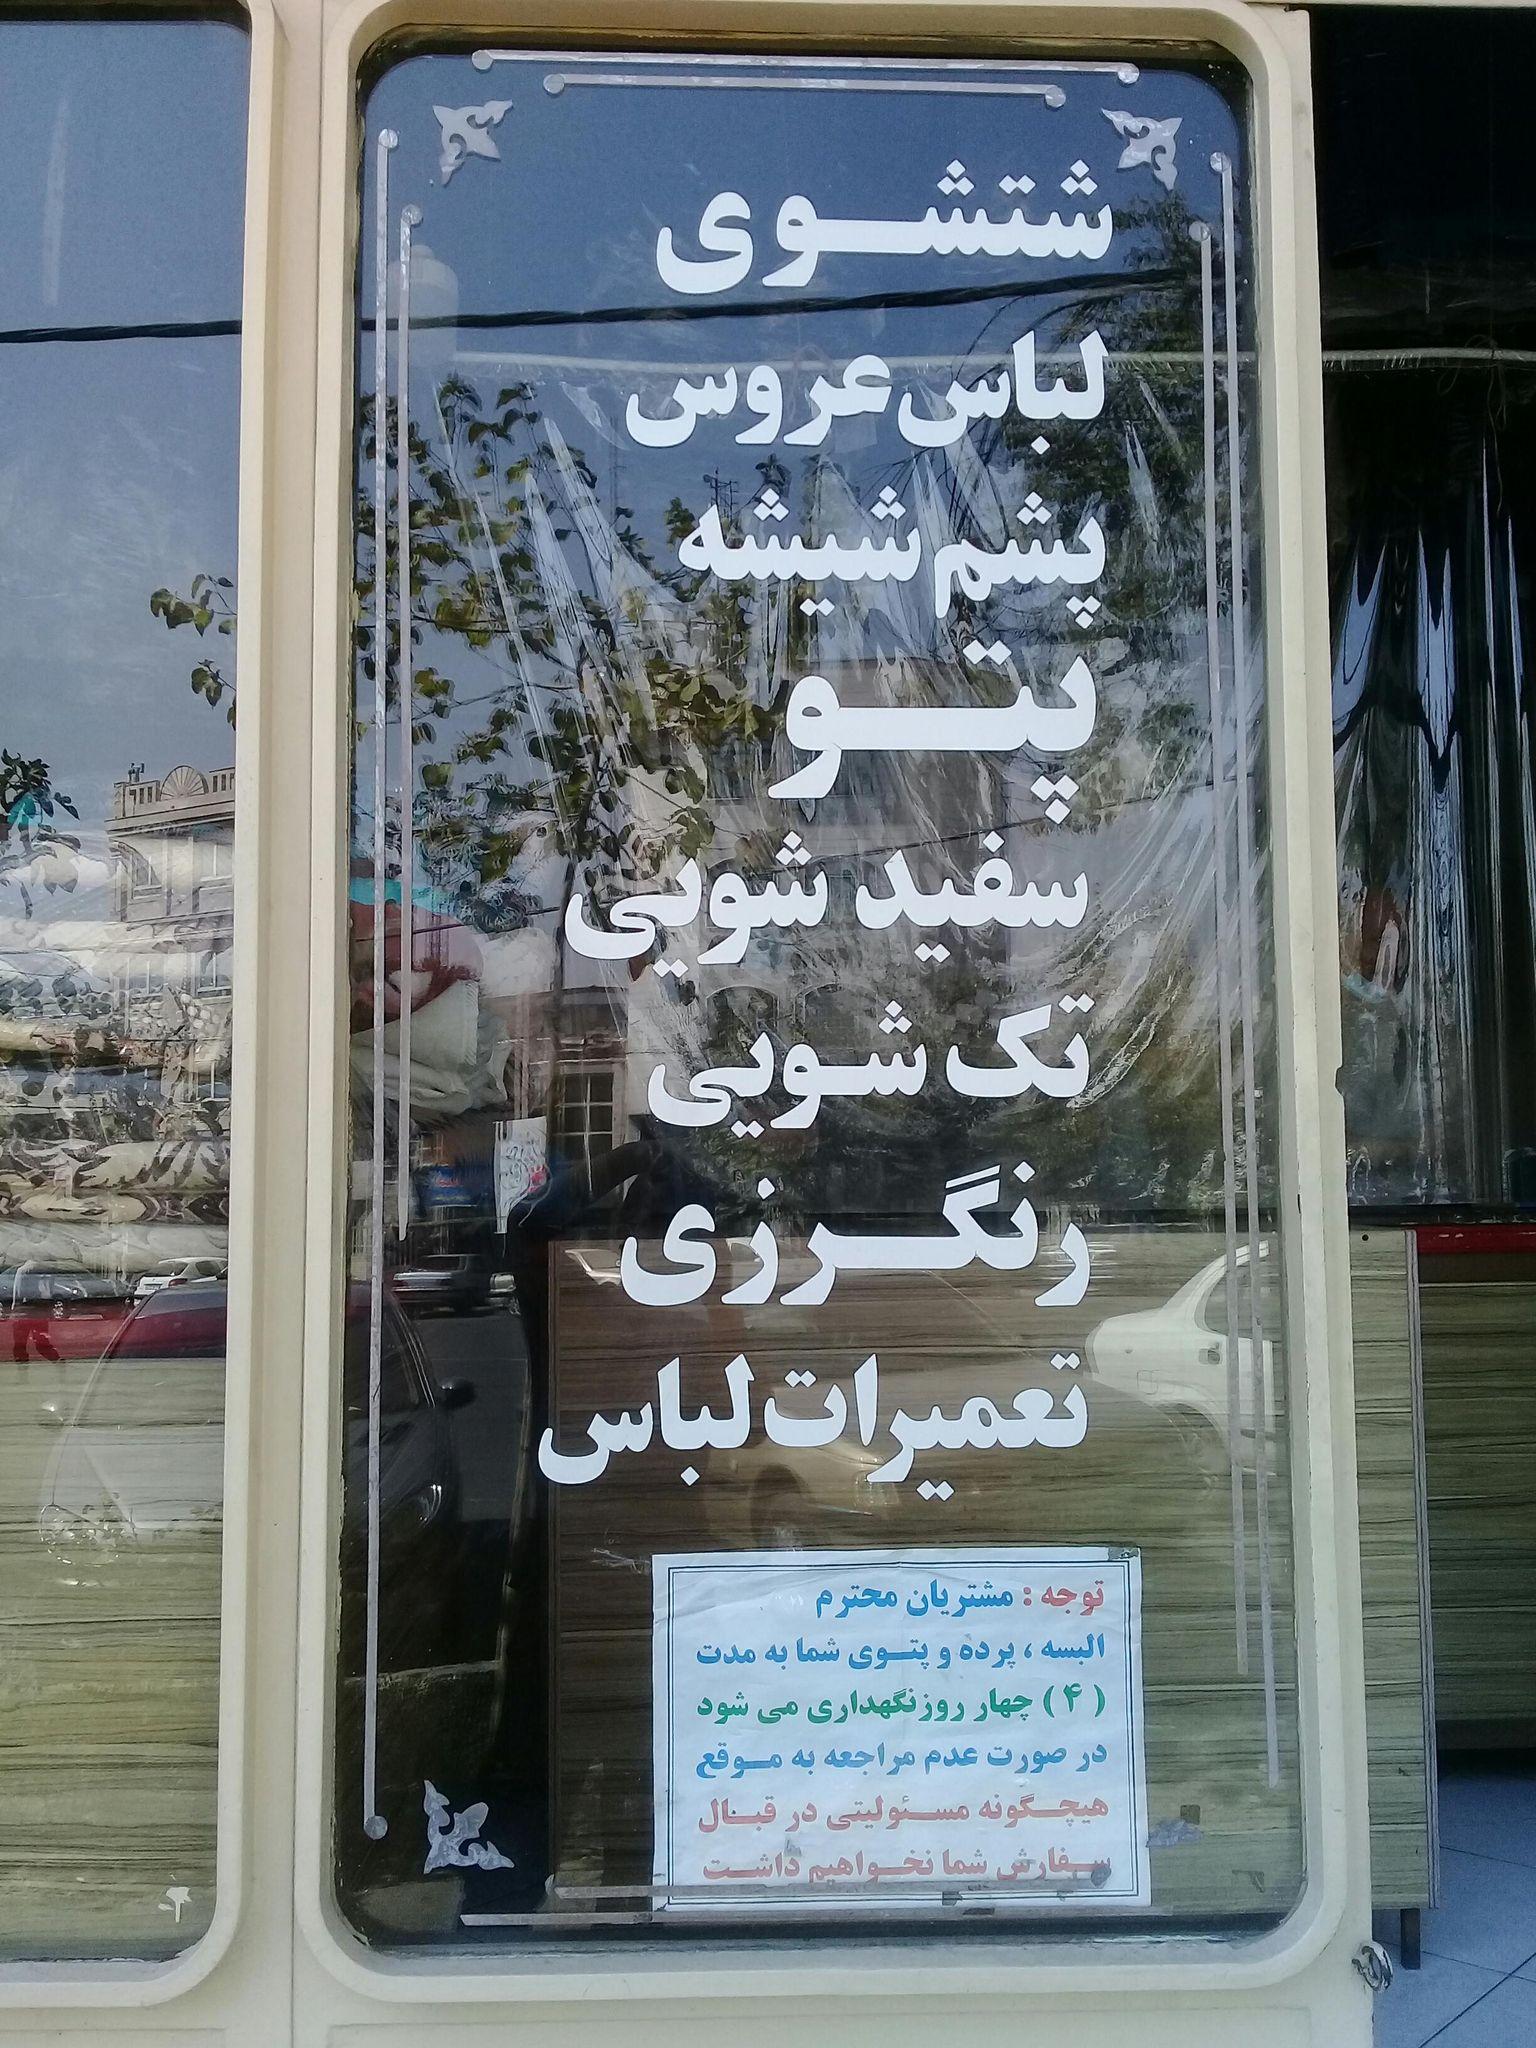 شتشوی
لباس عروس
پشم شیشه
پتو
سفید شویی
تک شویی
رنگرزی
تعمیرات لباس
توجه : مشتریان محترم
البسه ، پرده و پتوی شما به مدت
( ۴ ) چهار روز نگهداری می شود
در صورت عدم مراجعه به موقع
هیچگونه مسئولیتی در قبال
سفارش شما نخواهیم داشت